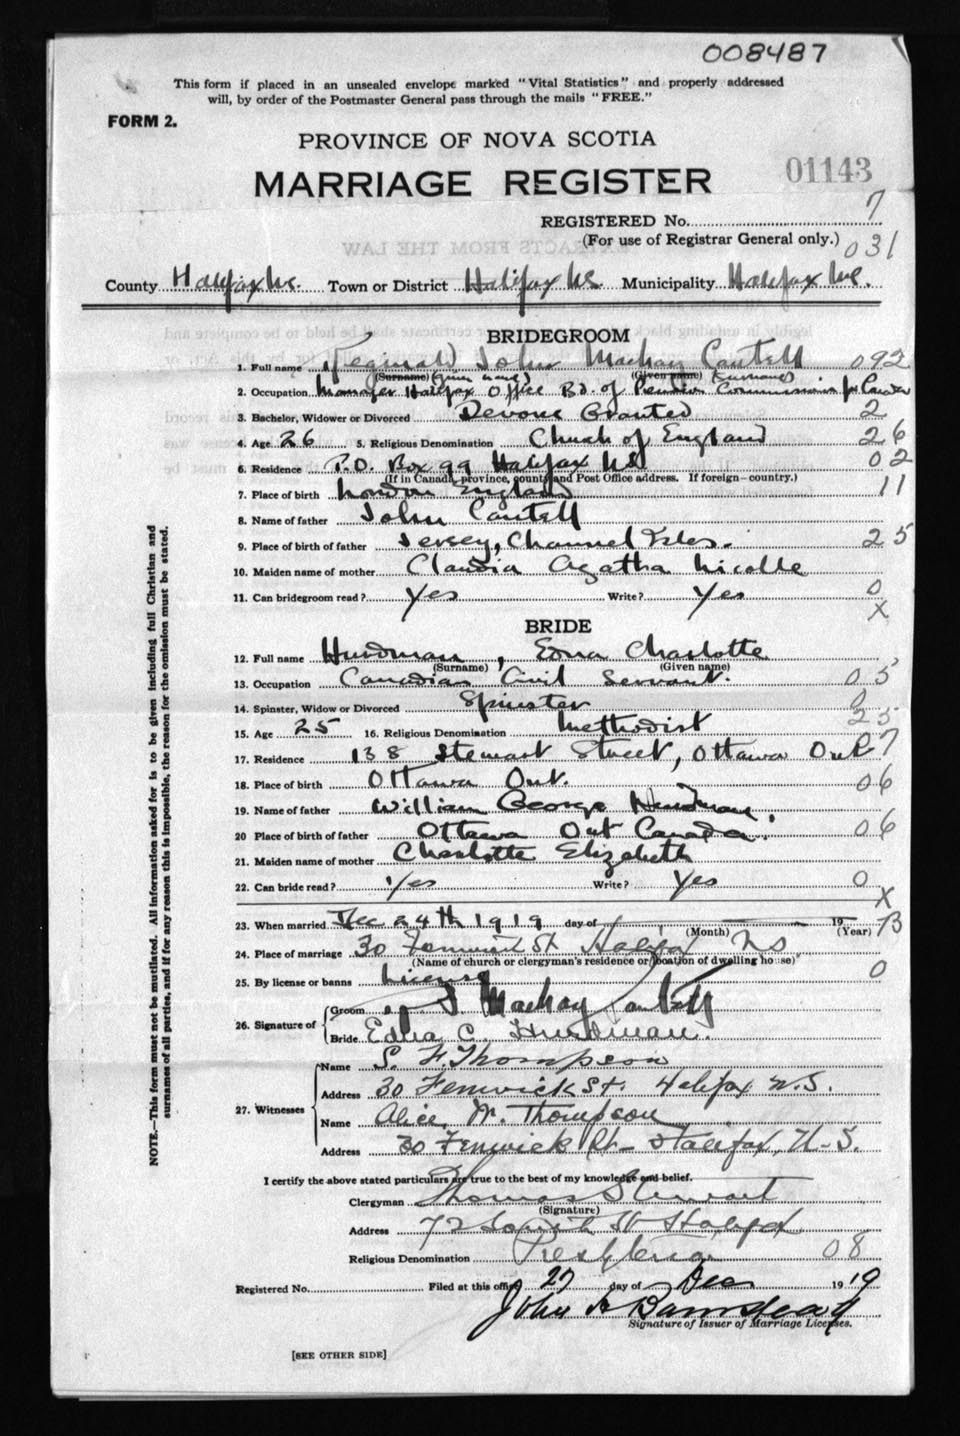 008487
This form if placed in an unsealed envelope marked "Vital Statistics" and properly addressed
will, by order of the Postmaster General pass through the mails "FREE."
FORM 2.
PROVINCE OF NOVA SCOTIA
MARRIAGE REGISTER 01143
REGISTERED No. 7
(For use of Registrar General only.) 031
County Halifax N.S. Town or District Halifax N.S. Municipality Halifax N.S.
BRIDEGROOM
1. Full name Reginald John Mackay Cantell 092
(Surname) (Given name) (Given name) (Surname)
2. Occupation Manager Halifax Office Bd. of Pension Commission for Canada
3. Bachelor, Widower or Divorced Devorse Granted 2
4. Age 26 5. Religious Denomination Church of England 26
6. Residence P.O. Box 99 Halifax N.S. 02
(If in Canada, province, county and Post Office address. If foreign-country.)
7. Place of birth London England 11
8. Name of father John Cantell
9. Place of birth of father Jersey, Channel Isles. 25
10. Maiden name of mother Claudia Agatha Nicolle
11. Can bridegroom read? Yes Write? Yes 0
X
BRIDE
12. Full name Hurdman, Edna Charlotte
(Surname) (Given name)
13. Occupation Canadian Civil Servant. 05
14. Spinster, Widow or Divorced Spinster 0
15. Age 25 16. Religious Denomination Methodist 25
17. Residence 138 Stewart Street, Ottawa Ont 07
18. Place of birth Ottawa Ont. 06
19. Name of father William George Hurdman.
20 Place of birth of father Ottawa Ont Canada. 06
21. Maiden name of mother Charlotte Elizabeth
22. Can bride read? Yes Write? Yes 0
X
23. When married Dec 24th 1919 day of 19 B
(Month) (Year)
24. Place of marriage 30 Fenwick St Halifax N S
(Name of church or clergyman's residence or location of dwelling house)
25. By license or banns License 0
26. Signature of
Groom J Mackay Cantell
Bride Edna C. Hurdman.
27. Witnesses
Name S. F. Thompson
Address 30 Fenwick St. Halifax N.S.
Name Alice W. Thompson
Address 30 Fenwick St- Halifax, N-S.
I certify the above stated particulars are true to the best of my knowledge and belief.
Clergyman Thomas Stewart
(Signature)
Address 72 St Halifax
Religious Denomination Presbyterian 08
Registered No. Filed at this office 27 day of Dec 1919
John
Signature of Issuer of Marriage Licenses.
[SEE OTHER SIDE]
NOTE.—This form must not be mutilated. All information asked for is to be given including full Christian and
surnames of all parties, and if for any reason this is impossible, the reason for the omission must be stated.